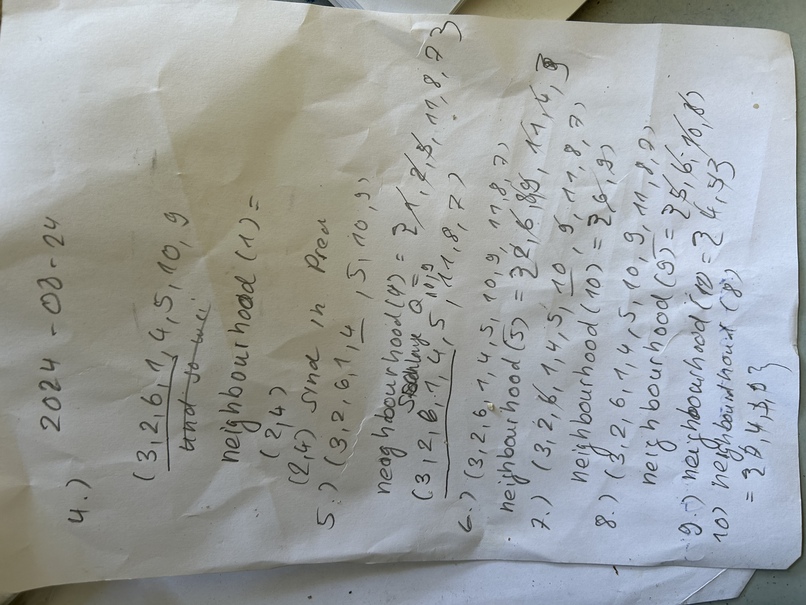 2024 - 03 - 24
4.)
(3, 2, 6, 1, 4, 5, 10, 9
und so
neighbourhood (1) =
(2,4)
(2,4) sind in Pred
5.) (3, 2, 6, 1, 4, 5, 10, 9)
neaghbourhood(4) = {1, 2, 5, 11, 8, 7}
Q =
(3, 2, 6, 1, 4, 5, 10, 9, 11, 8, 7)
6.) (3, 2, 6, 1, 4, 5, 10, 9, 11, 8, 7)
neighbourhood (5) = {2, 6, 8, 9, 11, 4,
7.) (3, 2, 6, 1, 4, 5, 10, 9, 11, 8, 7)
neighbourhood (10) = {6, 9}
8.) (3, 2, 6, 1, 4, 5, 10, 9, 11, 8, 7)
neighbourhood (9) = {5, 6, 10, 8}
9.) neighbourhood = {4, 5}
10) (8)